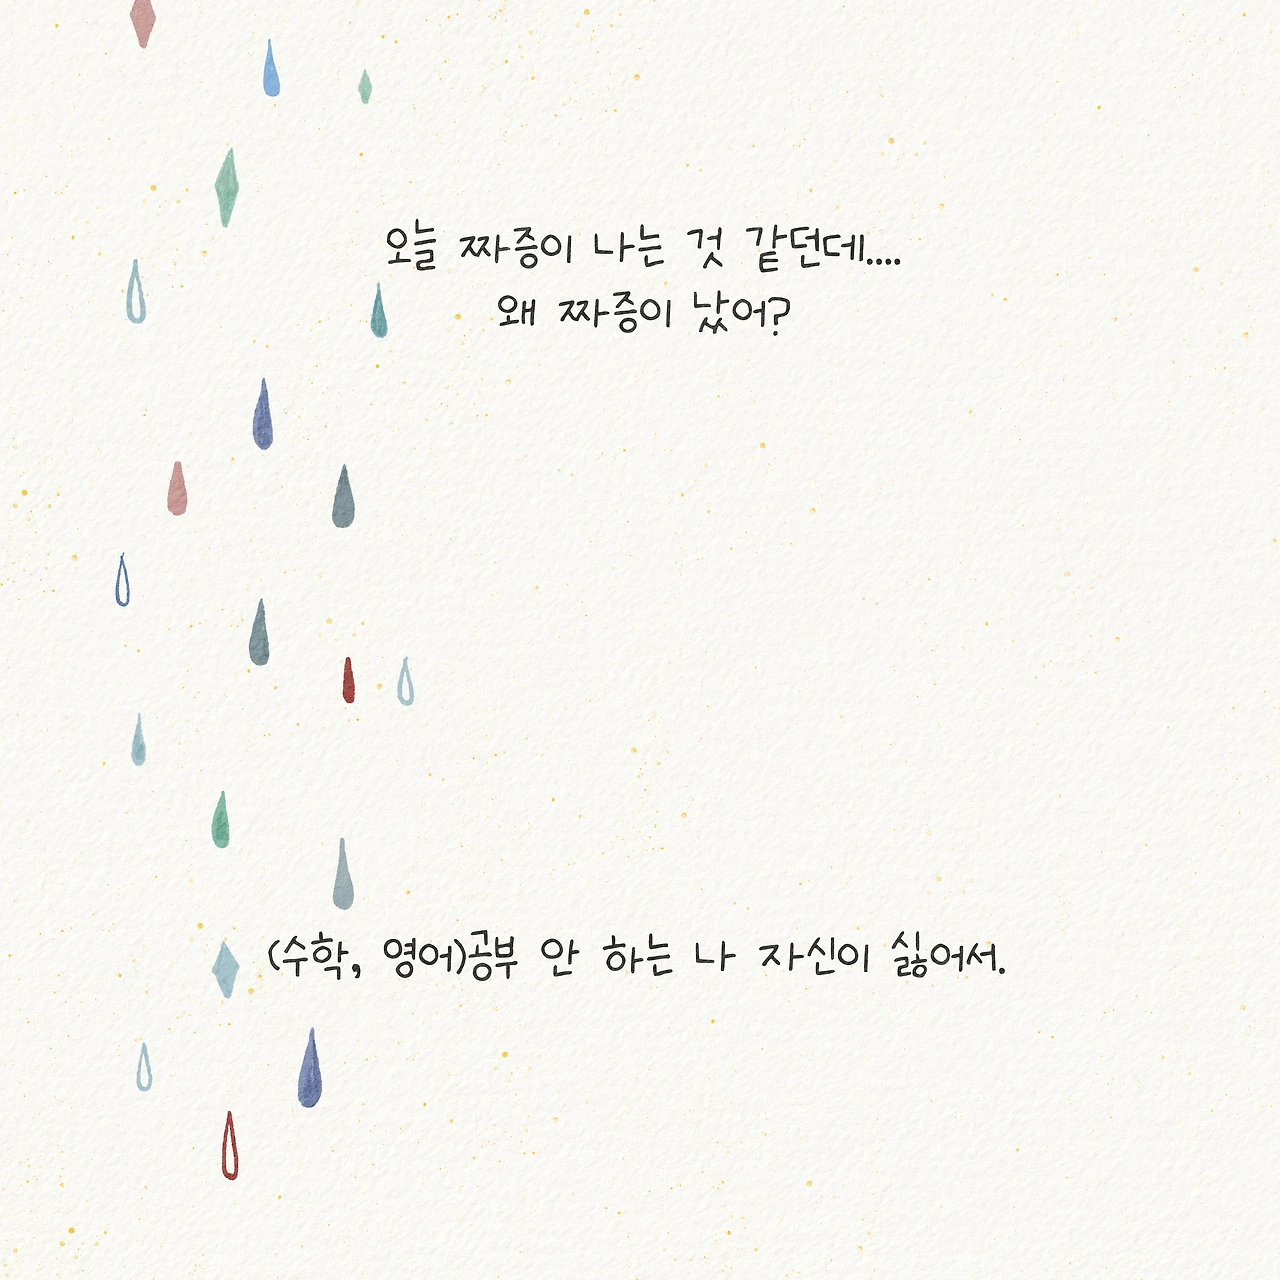 오늘 짜증이 나는 것 같던데....
왜 짜증이 났어?
(수학, 영어)공부 안 하는 나 자신이 싫어서.